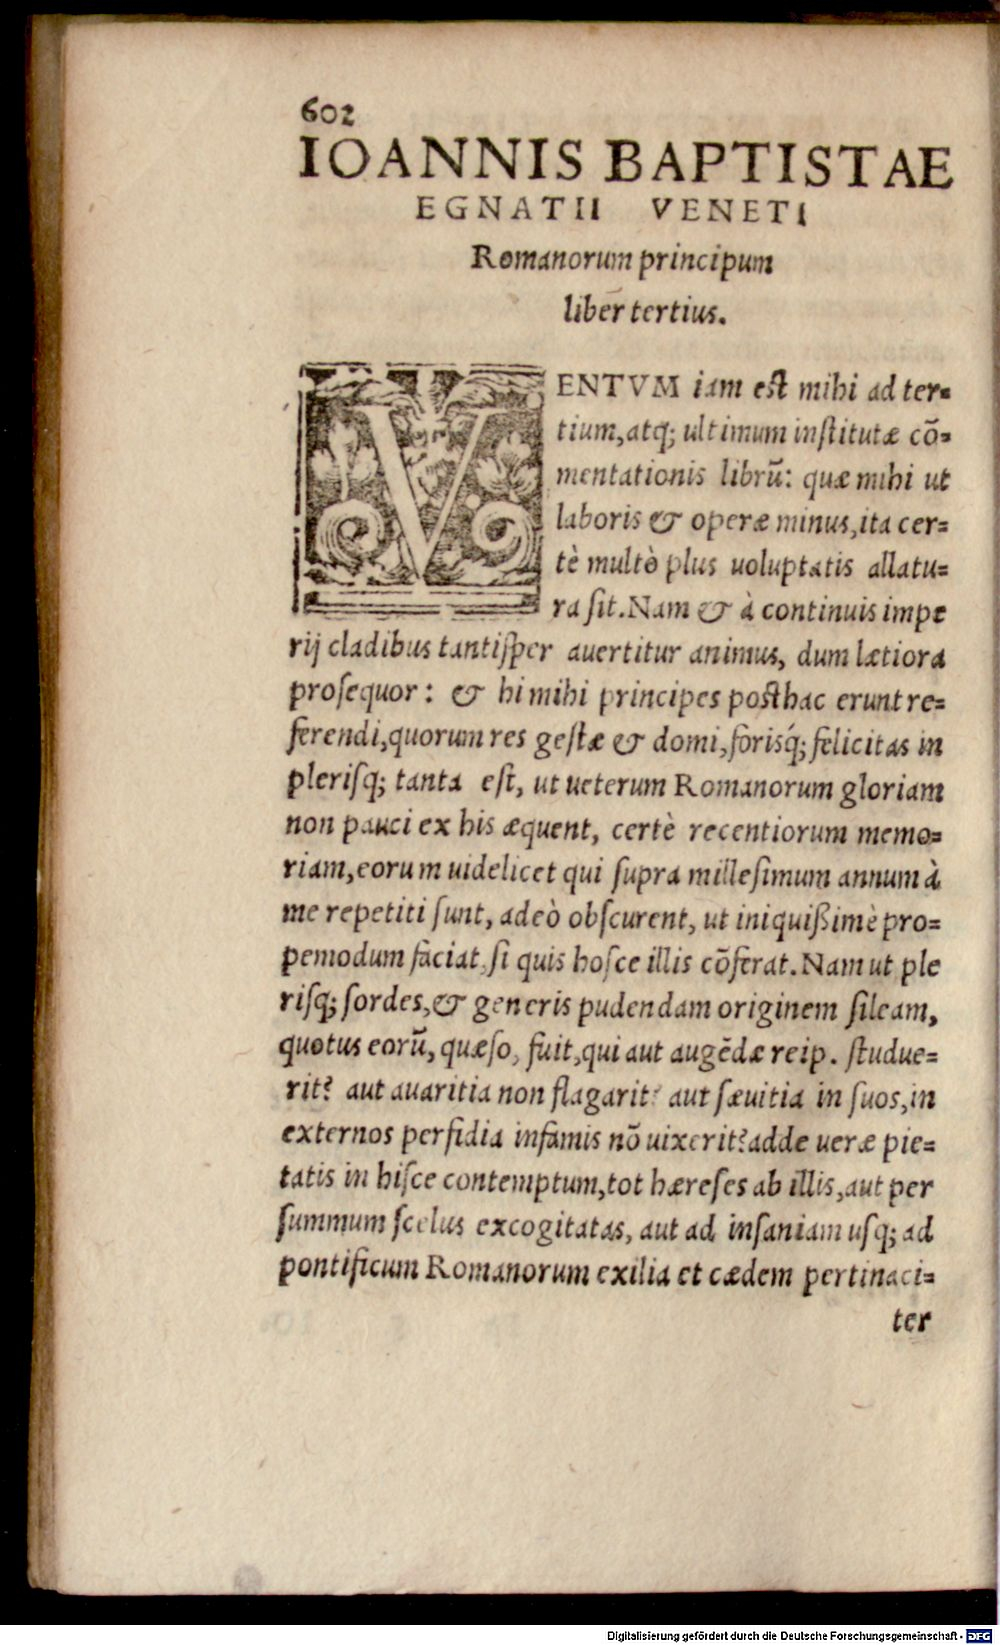 602
IOANNIS BAPTISTAE
EGNATII VENETI
Romanorum principum
liber tertius.
VENTVM iam est mihi ad ter-
tium, atq; ultimum institutæ cõ-
mentationis librũ: quæ mihi ut
laboris & operæ minus, ita cer-
tè multò plus uoluptatis allatu-
ra sit. Nam & à continuis impe
rij cladibus tantisper auertitur animus, dum lætiora
prosequor: & hi mihi principes posthac erunt re-
ferendi, quorum res gestæ & domi, forisq́; felicitas in
plerisq; tanta est, ut ueterum Romanorum gloriam
non pauci ex his æquent, certè recentiorum memo-
riam, eorum uidelicet qui supra millesimum annum à
me repetiti sunt, adeò obscurent, ut iniquißimè pro-
pemodum faciat, si quis hosce illis cõferat. Nam ut ple
risq; sordes, & generis pudendam originem sileam,
quotus eorũ, quæso, fuit, qui aut augẽdæ reip. studue-
rit? aut auaritia non flagarit? aut sæuitia in suos, in
externos perfidia infamis nõ uixerit? adde ueræ pie-
tatis in hisce contemptum, tot hæreses ab illis, aut per
summum scelus excogitatas, aut ad insaniam usq; ad
pontificum Romanorum exilia et cædem pertinaci-
ter
Digitalisierung gefördert durch die Deutsche Forschungsgemeinschaft - DFG